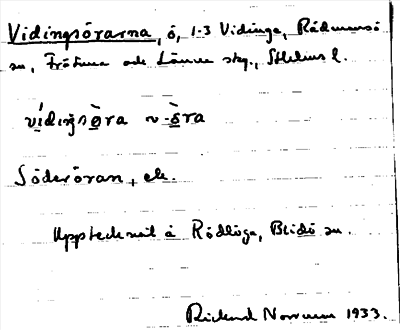 Vidingsörarna, ö, 1-3 Vidinge, Rådmansö
sn, Frötuna och Länna skg., Sthlms l.
vídiŋsö̀ra ~ -ö̀ra
Söderöran, etc.
Upptecknat å Rödlöga, Blidö sn.
Rickard 1933.